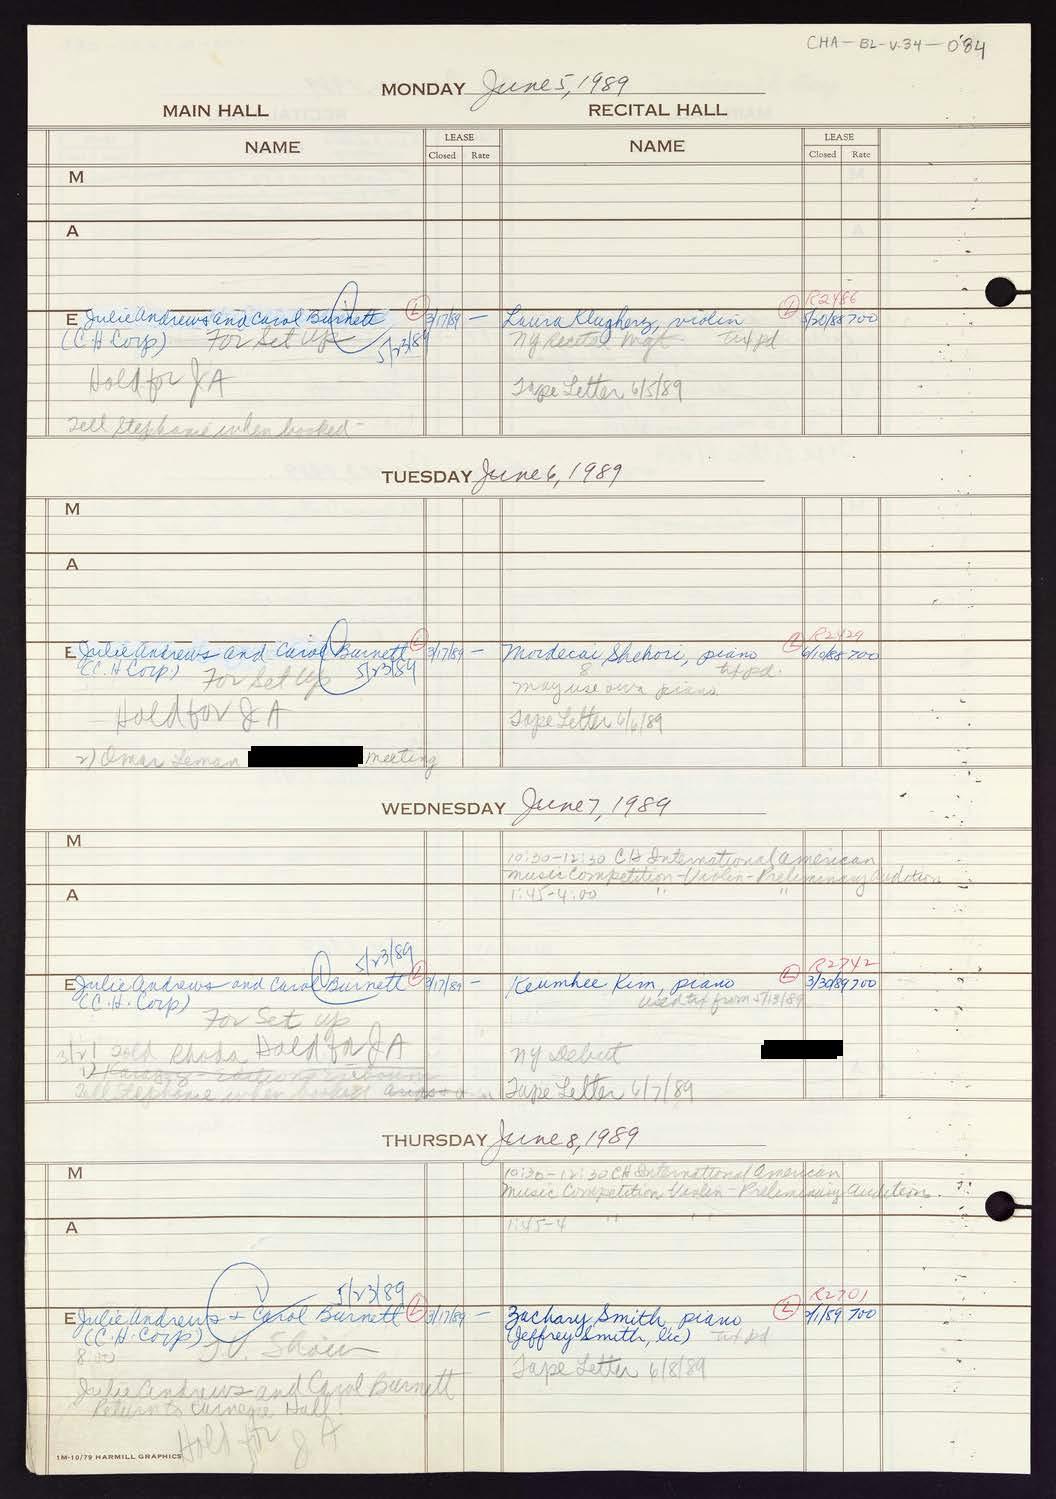 CHA-BL-V.34-084
MONDAY June 5, 1989
MAIN HALL RECITAL HALL
NAME LEASE NAME LEASE
Closed Rate Closed Rate
M
A
R2486
E Julie Andrews and Carol Burnett L 3/17/89 — Laura Klugherz, violin L 5/20/88 700
(C.H. Corp) For Set Up 5/23/89 NY Recital Mgt txt pd
Hold for J A Tape Letter 6/5/89
Tell Stephanie when booked -
TUESDAY June 6, 1989
M
A
R2429
E Julie Andrews and Carol Burnett L 3/17/89 — Mordecai Shehori, piano L 6/10/88 700
(C.H. Corp) For Set Up 5/23/89 8 txt pd.
may use own piano
Hold for J A Tape Letter 6/6/89
2) Omar Leman meeting
WEDNESDAY June 7, 1989
M
10:30-12:30 CH International American
Music Competition-Violin-Preliminary Audition
A 1:45-4:00 " "
5/23/89 R2742
E Julie Andrews and Carol Burnett L 3/17/89 — Keumhee Kim, piano L 3/30/89 700
(C.H. Corp) used txt from 5/13/89
For Set up
3/21 Told Rhoda Hold for J A NY Debut
Tell Stephanie when booked Tape Letter 6/7/89
THURSDAY June 8, 1989
M 10:30-12:30 CH International American
Music Competition Violin-Preliminary Audition.
A 1:45-4 " "
5/23/89 R2701
E Julie Andrews + Carol Burnett L 3/17/89 — Zachary Smith, piano L 2/1/89 700
(C.H. Corp) T.V. Show (Jeffrey Smith, lic) txt pd
8:00 Tape Letter 6/8/89
Julie Andrews and Carol Burnett
Return to Carnegie Hall
Hold for J A
1M-10/79 HARMILL GRAPHICS